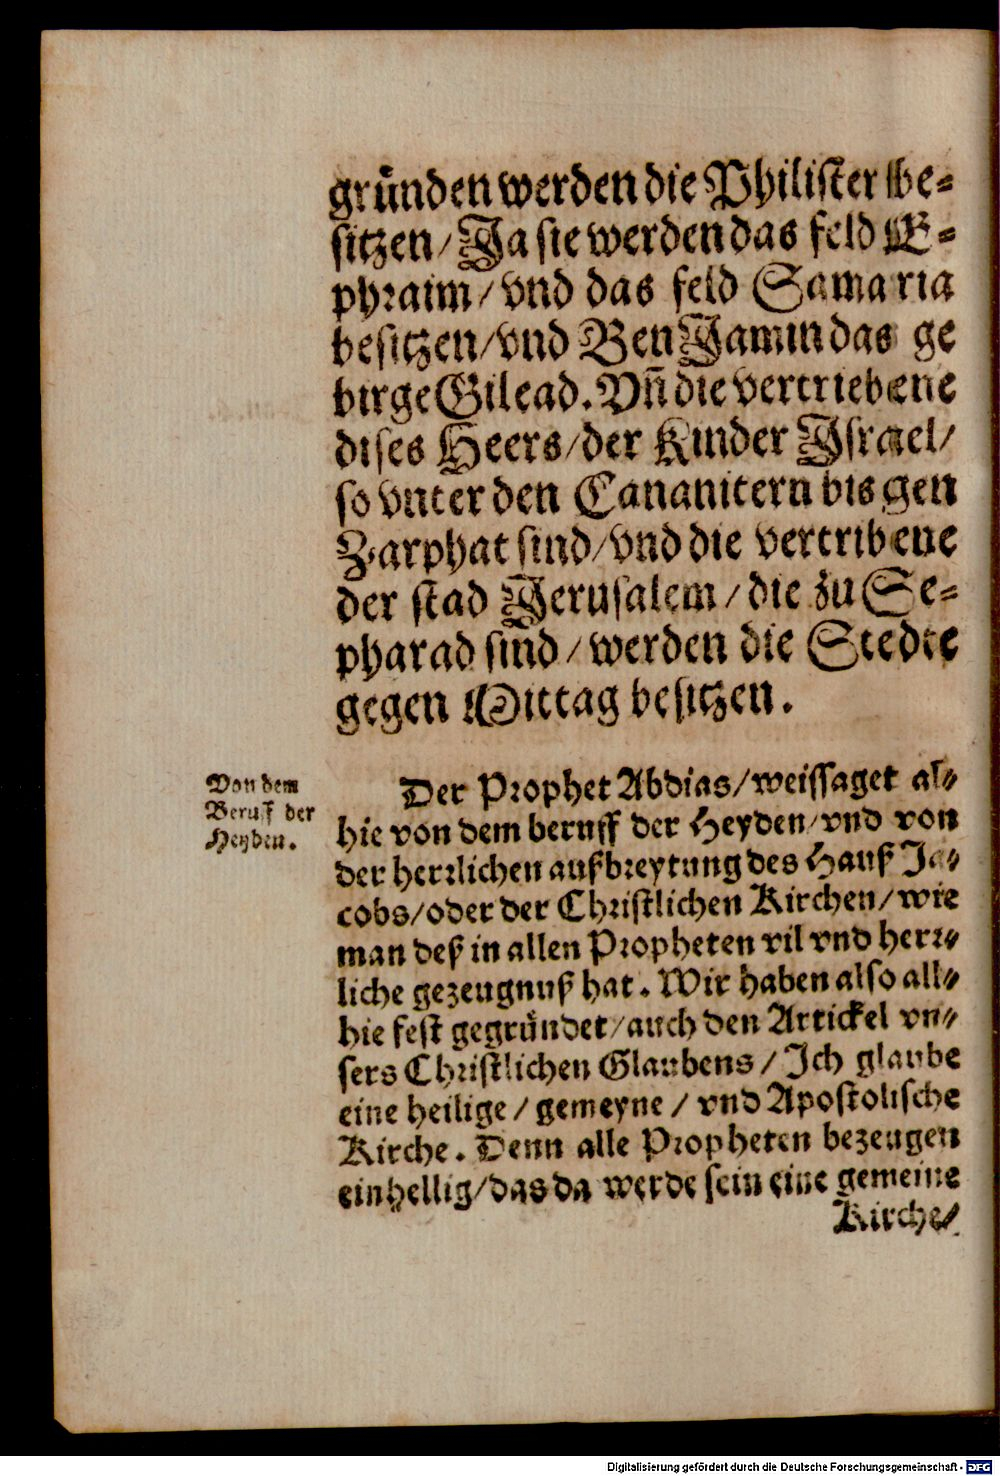 gründen werden die Philister be-
sitzen / Ja sie werden das feld E-
phraim / vnd das feld Samaria
besitzen / vnd BenJamin das ge
birge Gilead. Vñ die vertriebene
dises Heers / der Kinder Jsrael /
so vnter den Cananitern bis gen
Zarphat sind / vnd die vertribene
der stad Jerusalem / die zu Se-
pharad sind / werden die Stedte
gegen Mittag besitzen.
Von dem
Beruff der
Heyden.
Der Prophet Abdias / weissaget al-
hie von dem beruff der Heyden / vnd von
der herrlichen außbreytung des Hauß Ja-
cobs / oder der Christlichen Kirchen / wie
man deß in allen Propheten vil vnd herr-
liche gezeugnuß hat. Wir haben also all-
hie fest gegründet / auch den Artickel vn-
sers Christlichen Glaubens / Jch glaube
eine heilige / gemeyne / vnd Apostolische
Kirche. Denn alle Propheten bezeugen
einhellig / das da werde sein eine gemeine
Kirche /
Digitalisierung gefördert durch die Deutsche Forschungsgemeinschaft - DFG